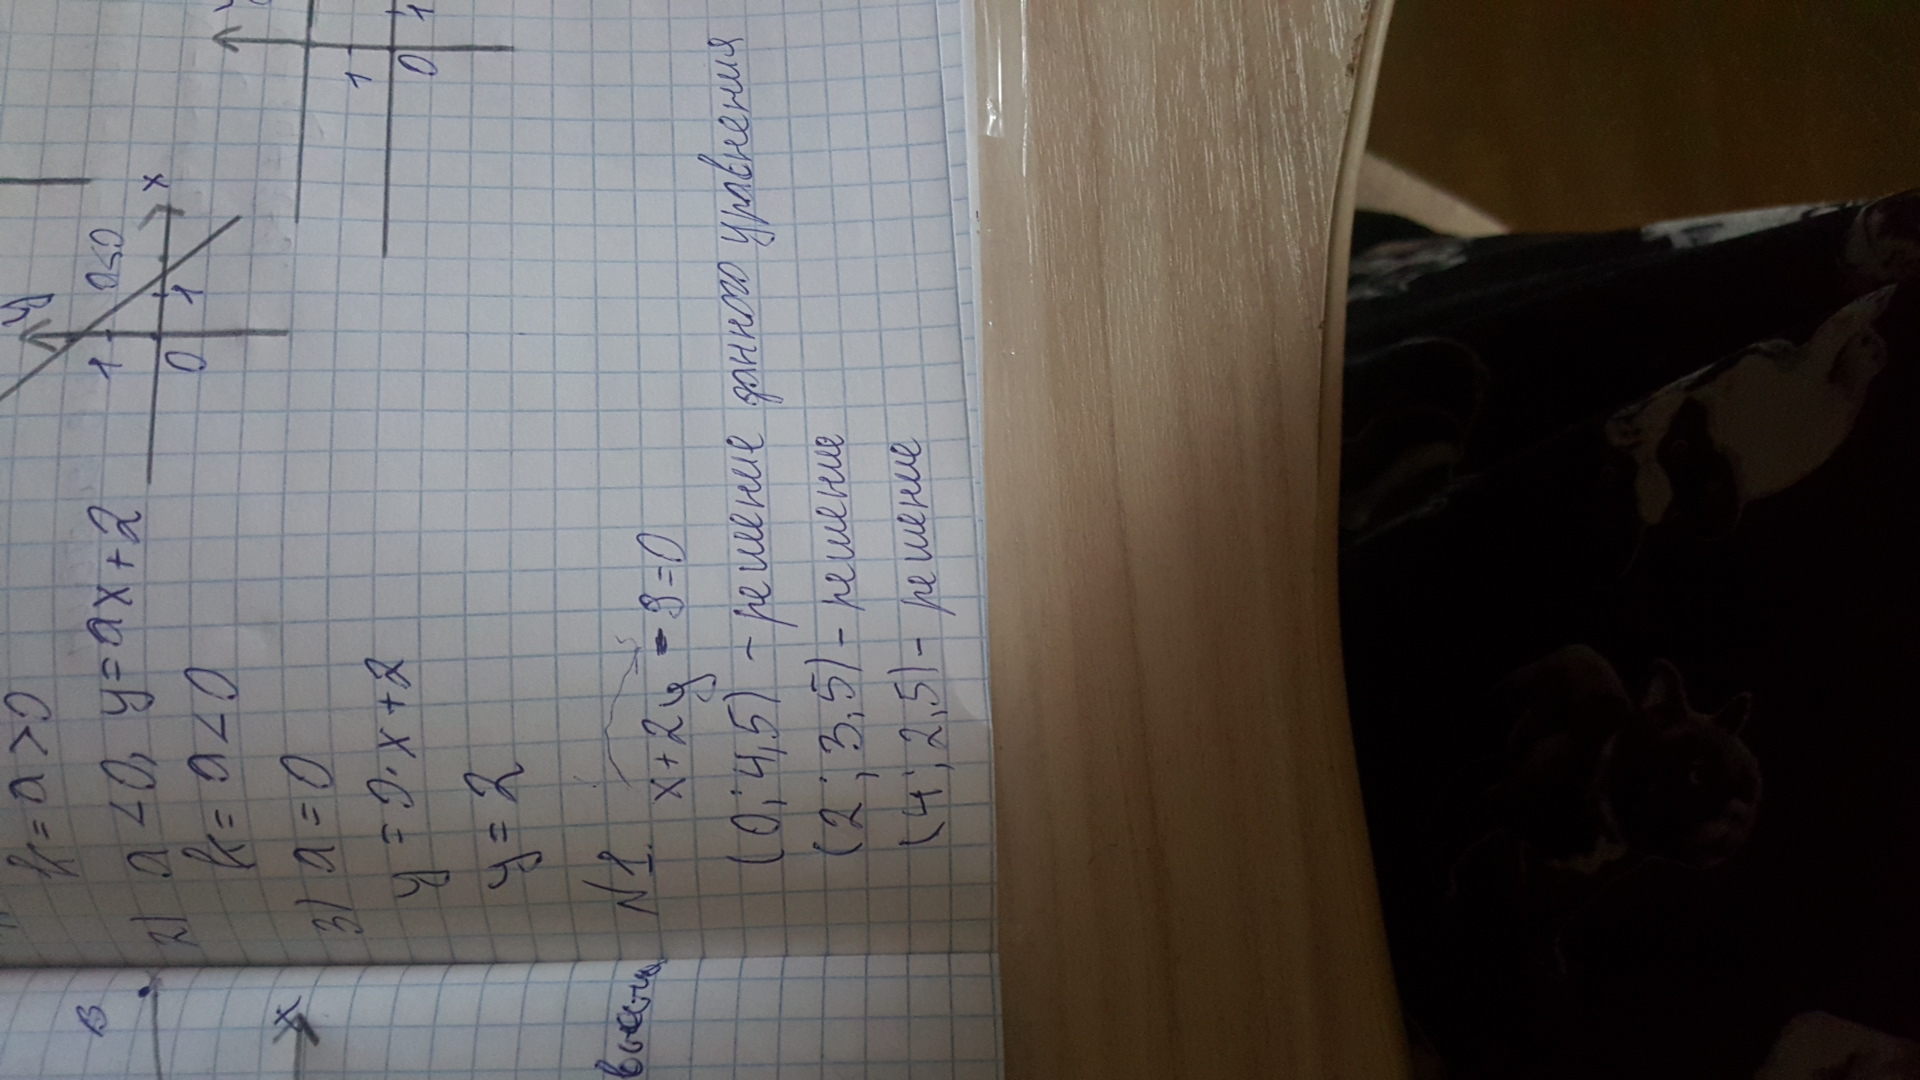 k = a > 0
2) a < 0, y = ax + 2
k = a < 0
y
1
a<0
0
1
x
3) a = 0
y = 0 · x + 2
y = 2
1
0
1
N 1.
x + 2y - 9 = 0
(0; 4,5) - решение данного уравнения
(2; 3,5) - решение
(4; 2,5) - решение
B
x